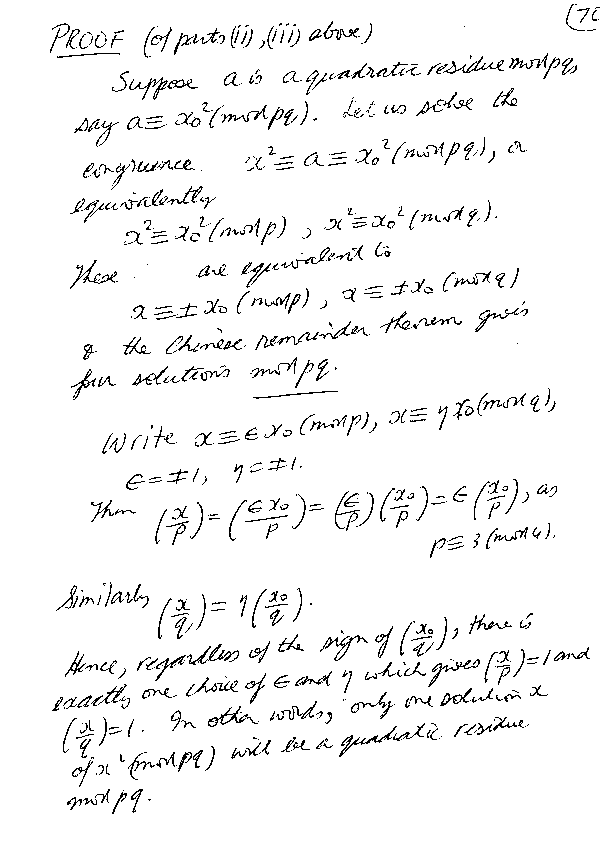 (70
PROOF (of parts (ii), (iii) above)
Suppose a is a quadratic residue mod pq,
say a ≡ x₀² (mod pq). Let us solve the
congruence x² ≡ a ≡ x₀² (mod pq), or
equivalently
x² ≡ x₀² (mod p), x² ≡ x₀² (mod q).
These are equivalent to
x ≡ ± x₀ (mod p), x ≡ ± x₀ (mod q)
& the Chinese remainder theorem gives
four solutions mod pq.
Write x ≡ ϵ x₀ (mod p), x ≡ η x₀ (mod q),
ϵ = ±1, η = ±1.
Then (x/p) = (ϵ x₀/p) = (ϵ/p) (x₀/p) = ϵ (x₀/p), as
p ≡ 3 (mod 4).
Similarly (x/q) = η (x₀/q).
Hence, regardless of the sign of (x₀/q), there is
exactly one choice of ϵ and η which gives (x/p) = 1 and
(x/q) = 1. In other words, only one solution x
of x² (mod pq) will be a quadratic residue
mod pq.